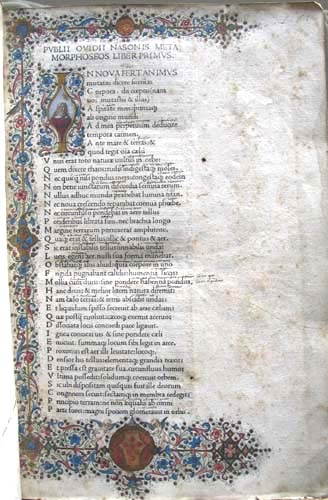 PVBLII OVIDII NASONIS META
MORPHOSEOS LIBER PRIMVS.
N NOVA FERT ANIMVS
mutatas dicere formas
C orpora. dii cœptis (nam
uos mutastis & illas)
A spirate meis: primaq;
ab origine mundi
A d mea perpetuum deducite
tempora carmen.
A nte mare & terras: &
quod tegit oīa cælū
V nus erat toto naturæ uultus in orbe:
Q uem dixere chaos: rudis indigestaq; moles.
N ec quicq̄ nisi pondus iners: congestaq; eodem
N on bene iunctarum discordia semina rerum.
N ullus adhuc mundo præbebat lumina titan:
N ec noua crescendo reparabat cornua phœbe.
N ec circumfuso pendebat in aere tellus
P onderibus librata suis: nec brachia longo
M argine terrarum porrexerat amphitrite.
Q uaq; erat & tellus: illic & pontus & aer.
S ic erat instabilis tellus: innabilis unda:
L ucis egens aer. nulli sua forma manebat.
O bstabatq; aliis aliud: quia corpore in uno
F rigida pugnabant calidis: humentia siccis:
M ollia cum duris: sine pondere habentia pondus.
H anc deus: & melior litem natura diremit.
N am cælo terras: & terris abscidit undas:
E t liquidum spisso secreuit ab aere cælum:
Q uæ postq̄ euoluit: cæcoq; exemit aceruo:
D issociata locis concordi pace ligauit.
I gnea conuexi uis: & sine pondere cæli
E micuit: summaq; locum sibi legit in arce.
P roximus est aer illi leuitate: locoq;.
D ensior his tellus: elementaq; grandia traxit:
E t pressa est grauitate sua. circumfluus humor
V ltima possedit: solidumq; coercuit orbem.
S ic ubi dispositam quisquis fuit ille deorum
C ongeriem secuit: sectamq; in membra redegit:
P rincipio terram: ne non æqualis ab omni
P arte foret: magni speciem glomerauit in orbis.